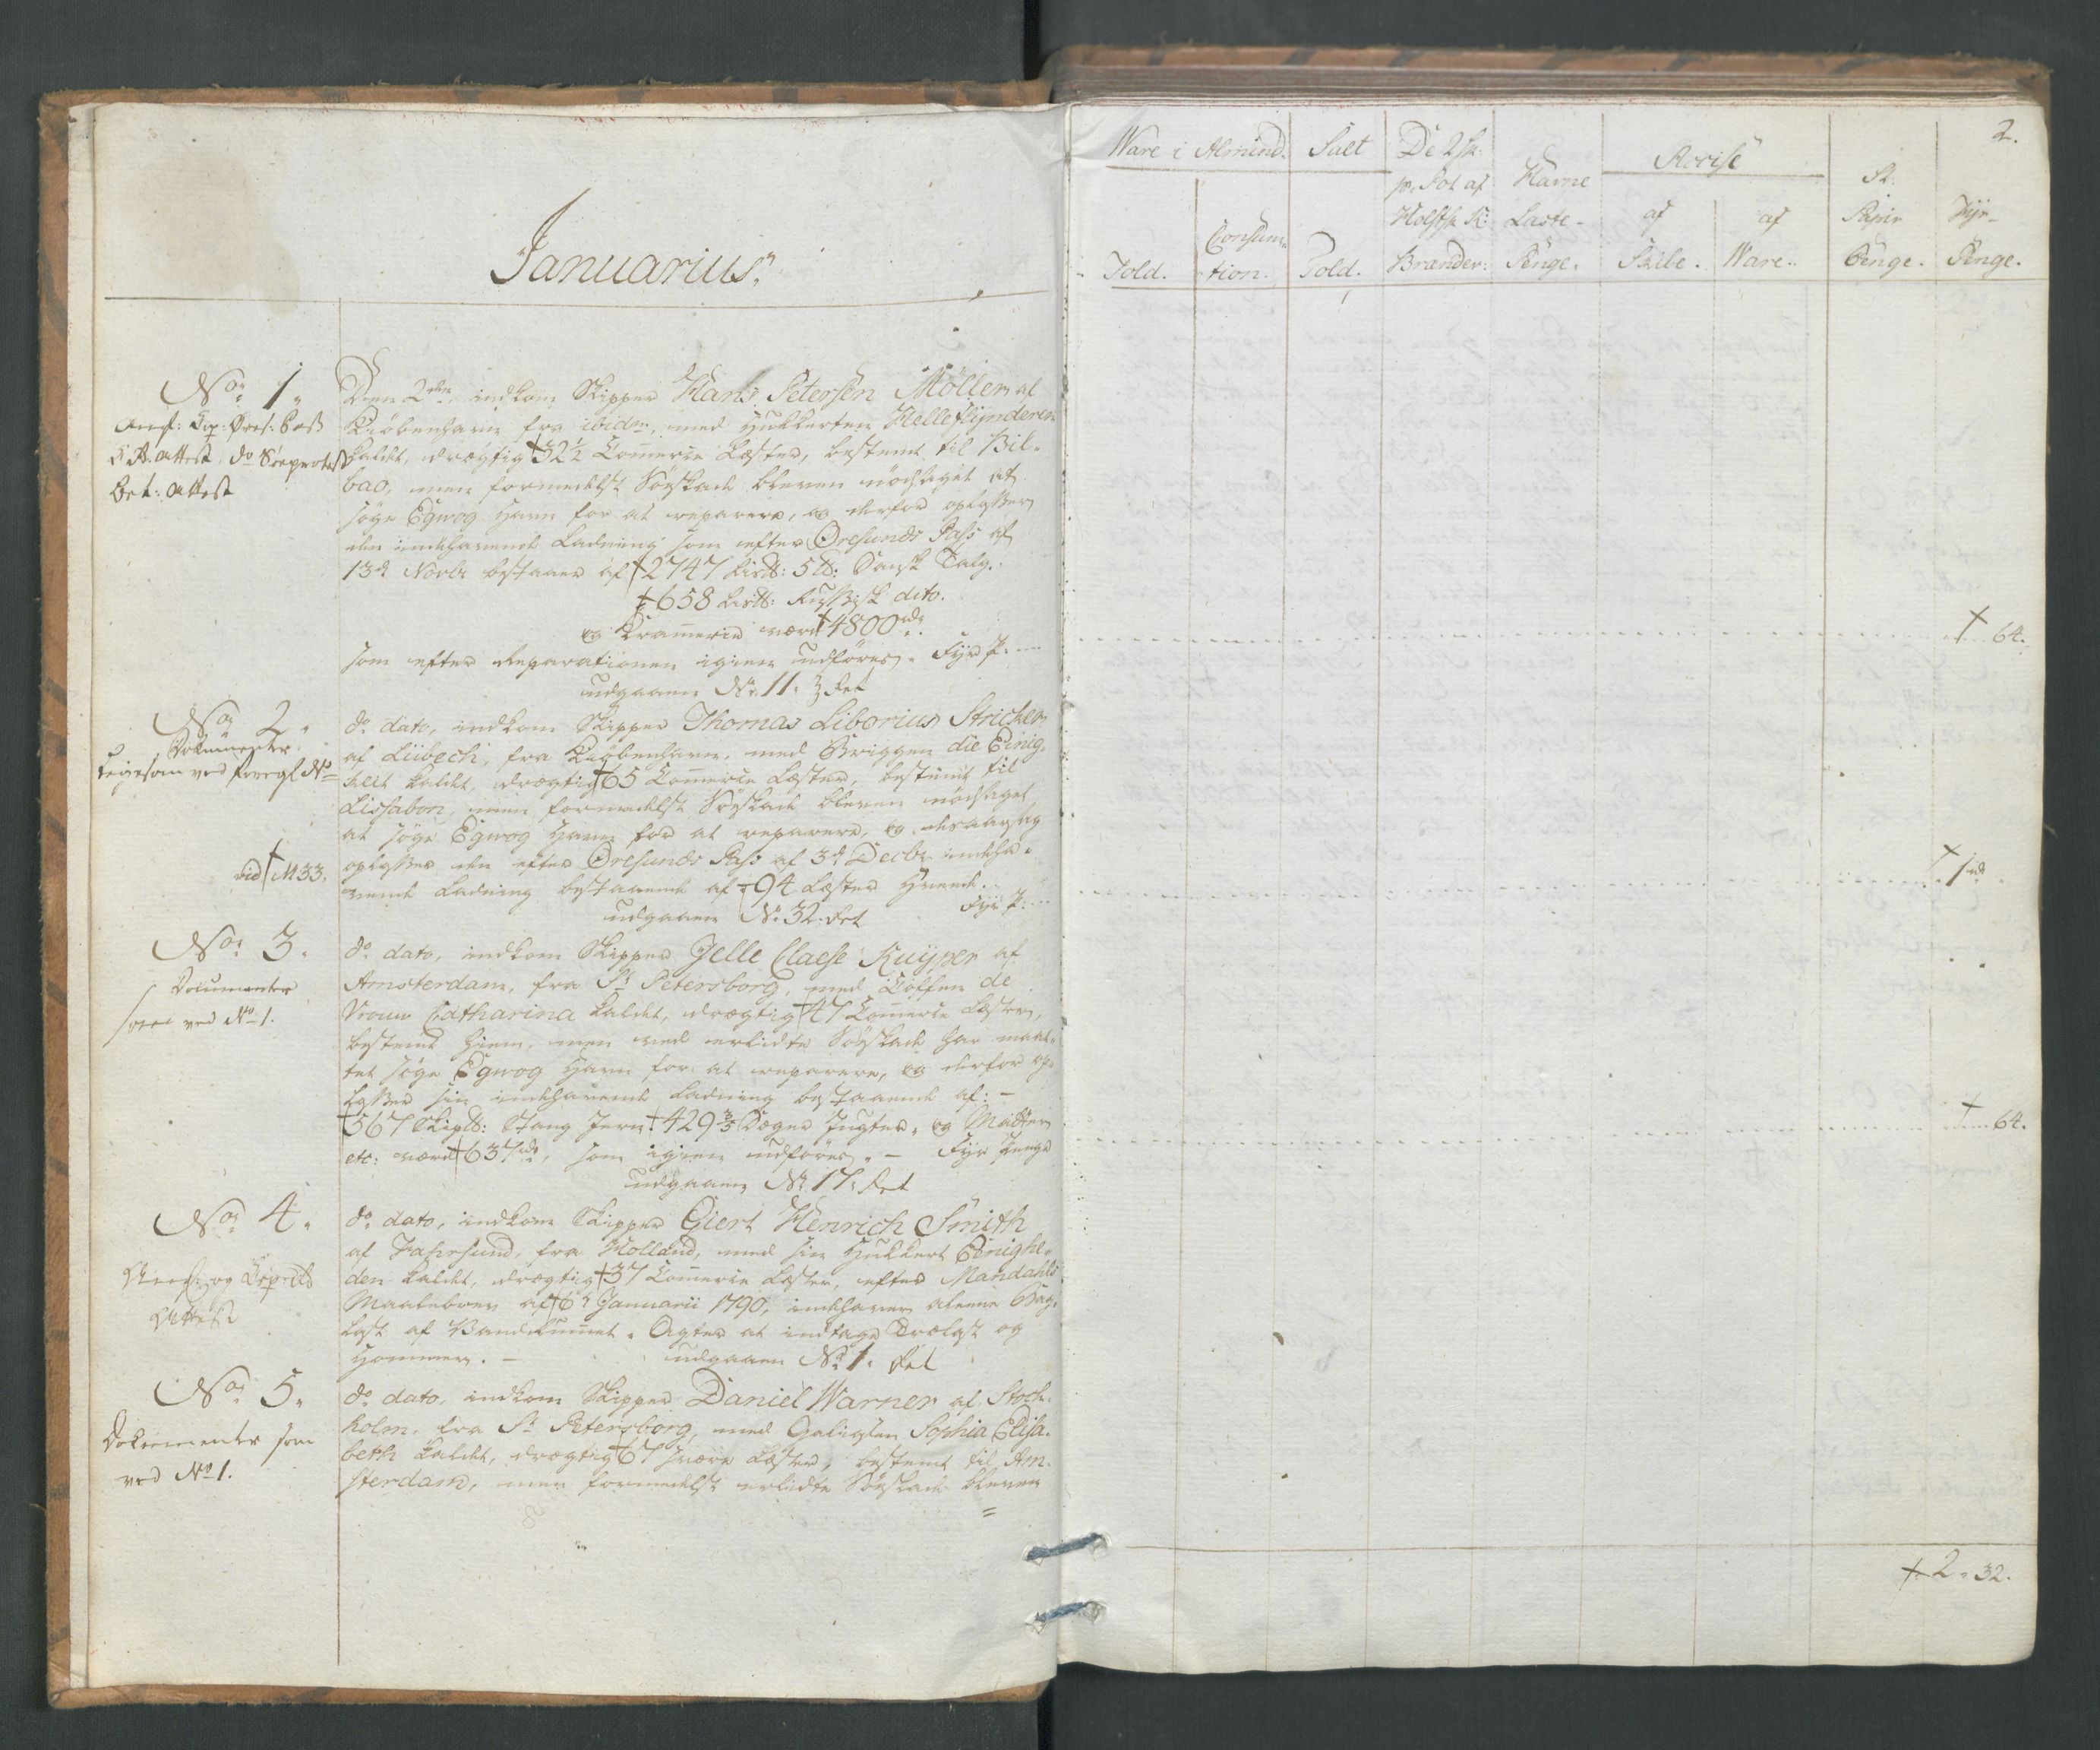 Januarius.
No. 1.
Den 2den indkom Skipper Hans Petersen Möller af
Kiöbenhavn fra ibidm, med Hukkerten Helleflynderen
kaldet, drægtig 32½ Commerce Læster, bestemt til Bil-
bao, men formedelst Söeskade bleven nödsaget at
söge Egvog Havn for at reparere, og derfor oplosser
den indehavende Ladning som efter Öresunds Pass af
13de Novbr bestaaer af 2747 Lis℔: 5 ℔: Dansk Talg.
658 Lis℔: Russisk dito.
og Kramerie værd 4800 rdr
som efter Reparationen igien udföres. Fyr P.
udgaaen No. 11.
Attest do Söeprotest
Attest
No. 2.
Dokumenter
ligesom ved No
do dato, indkom Skipper Thomas Liborius Stricker
af Lübech, fra Kiöbenhavn, med Briggen die Einig-
keit kaldet, drægtig 65 Commerce Læster, bestemt til
Lissabon, men formedelst Söeskade bleven nödsaget
at söge Egvog Havn for at reparere, og desaarsag
oplosser den efter Öresunds Pass af 3de Decbr indeha-
vende Ladning bestaaende af 94 Læster Hvede.
udgaaen No. 32. Fyr P.
vid M 33.
No. 3.
Documenter
som ved No 1.
do dato, indkom Skipper Jelle Claese Kuyper af
Amsterdam, fra St Petersborg, med Koffen de
Vrouw Catharina kaldet, drægtig 47 Commerce Læster,
bestemt hiem, men ved erlidte Söeskade har maat-
tet söge Egvog Havn for at reparere, og derfor op-
losser sin indehavende Ladning bestaaende af: -
567 Skip℔: Stang Jern 429 3/5 Deger Jugter, og Matter
etc: værd 637 rdr, som igien udföres. - Fyr Penge
udgaaen No 17.
No. 4.
Attest
do dato, indkom Skipper Giert Henrich Smith
af Fahrsund, fra Holland, med sin Hukkert Eenighe-
den kaldet, drægtig 37 Commerce Læster, efter Mandahls
Maalebrev af 6te Januarii 1790, indehaver alene Bag-
last af Vandrummet. Agter at indtage Trælast og
Hommer. - udgaaen No 1.
No. 5.
Dokumenter som
ved No 1.
do dato, indkom Skipper Daniel Warner af Stock-
holm, fra St Petersborg, med Galiasen Sophia Elisa-
beth kaldet, drægtig 67 svære Læster, bestemt til Am-
sterdam, men formedelst erlidte Söeskade bleven
=
2.
Ware i Almind.
Told.
Consum-
tion.
Salt
Told.
De 2 sk.
pr. Pot af
Holstsk K:
Brænder:
Havne
Laste-
Penge.
Accise
af
Skibe.
af
Ware.
St:
Papir
Penge.
Fyr-
Penge.
64.
1 rdr
64.
2. 32.